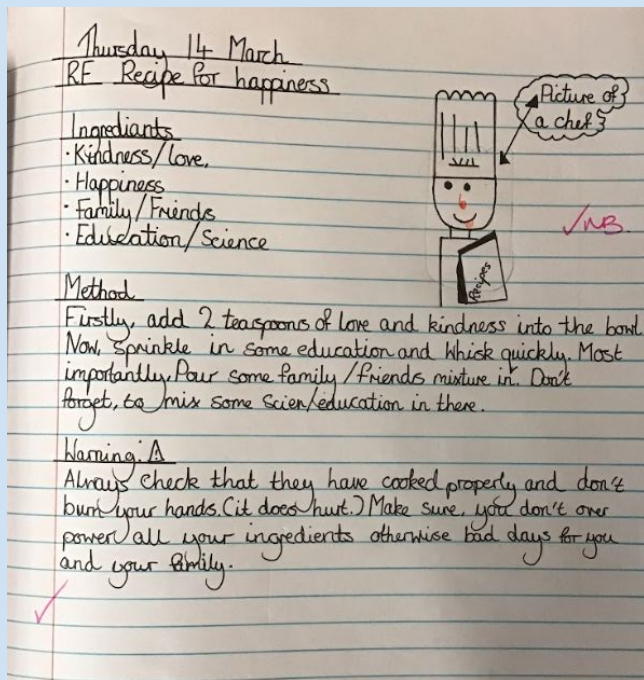 Thursday 14 March
RE Recipe for happiness
Picture of
a chef
Ingrediants
· Kindness/love,
· Happiness
· Family/Friends
· Education/Science
✓WB.
Recipes
Method
Firstly, add 2 teaspoons of love and kindness into the bowl
Now, sprinkle in some education and whisk quickly. Most
importantly, Pour some family/friends mixture in. Don't
forget, to mix some scien/education in there.
Warning: ⚠
Always check that they have cooked properly and don't
burn your hands. (it does hurt.) Make sure, you don't over
power all your ingredients otherwise bad days for you
and your family.